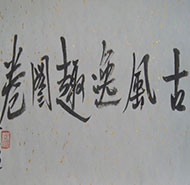 古風逸趣圖卷